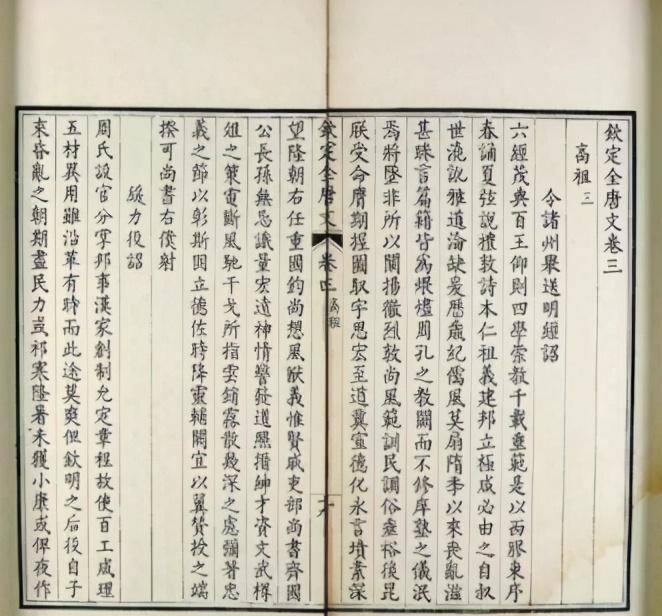 欽定全唐文卷三
高祖三
令諸州舉送明經詔
六經茂典百王仰則四學崇教千載垂範是以西膠東序
春誦夏弦說禮敦詩本仁祖義建邦立極咸必由之自叔
世澆訛雅道淪缺爰歷歲紀儒風莫扇隋季以來喪亂滋
甚睠言篇籍皆為煨燼周孔之教闕而不修庠塾之儀泯
焉將墜非所以闡揚徽烈敦尚風範訓民調俗垂裕後昆
朕受命膺期握圖馭宇思宏至道冀宣德化永言墳素深
欽定全唐文 卷
望隆朝右任重國鈞尚想風猷義惟賢戚吏部尚書齊國
公長孫無忌識量宏遠神情警發道照搢紳才資文武樽
俎之策電斷風馳干戈所指雲銷霧散殷深之處彌著忠
義之節以彰斯固立德佐時降靈輔闕宜以翼贊授之端
揆可尚書右僕射
緩力役詔
周氏設官分掌邦事漢家創制允定章程故使百工咸理
五材異用雖沿革有時而此途莫爽但欽明之后後自子
來昏亂之朝期盡民力豈祁寒隆暑未獲小康或俾夜作